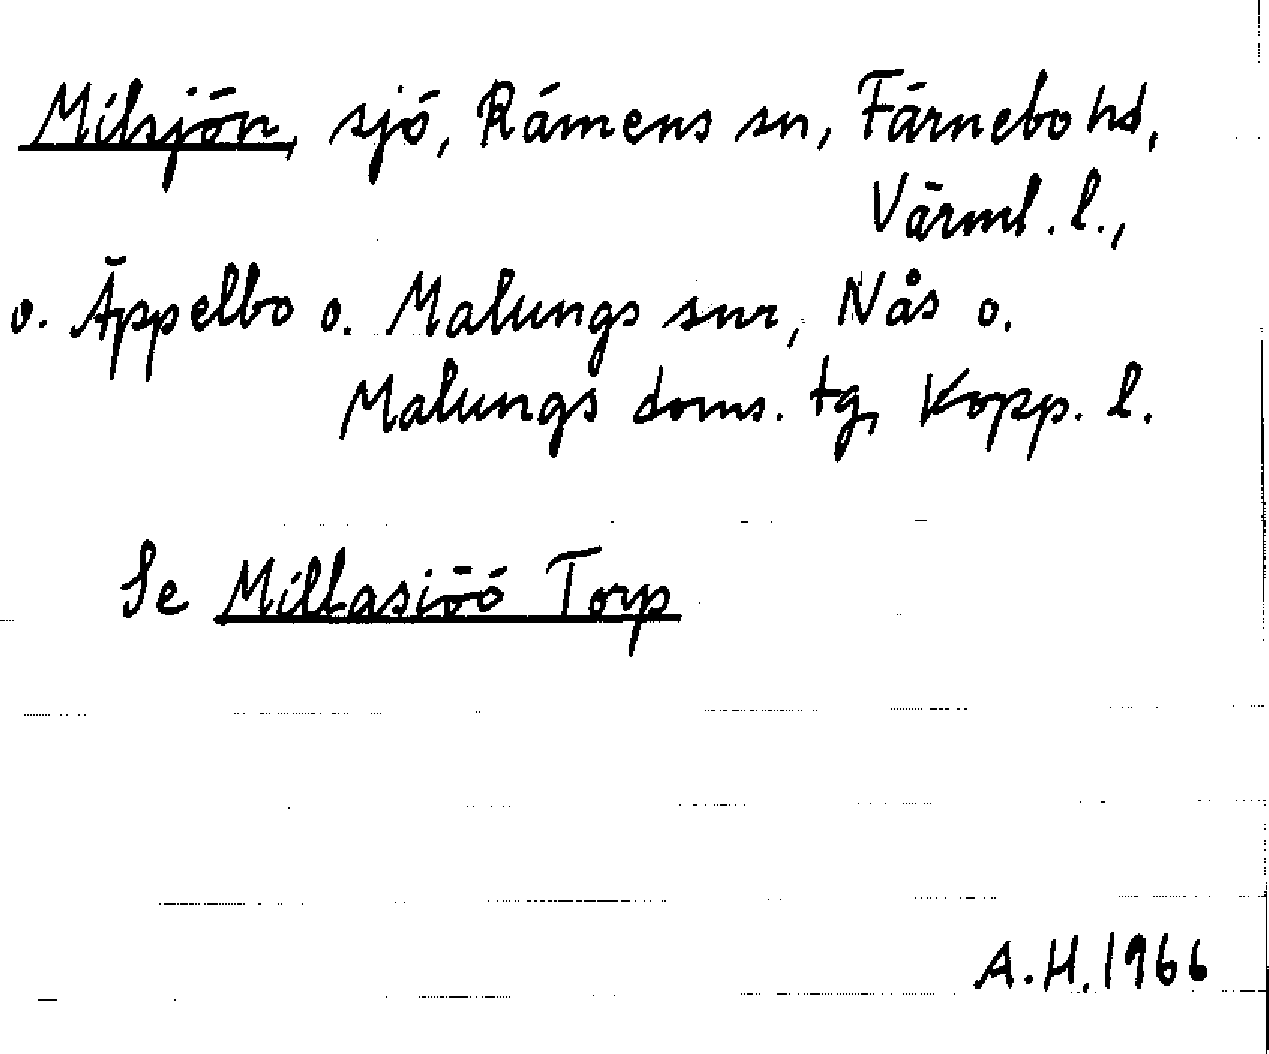 Milsjön, sjö, Rämens sn, Färnebo hd,
Värml. l.,
o. Äppelbo o. Malungs snr, Nås o.
Malungs doms. tg, Kopp. l.
Se Millasiöö Torp
A.H. 1966